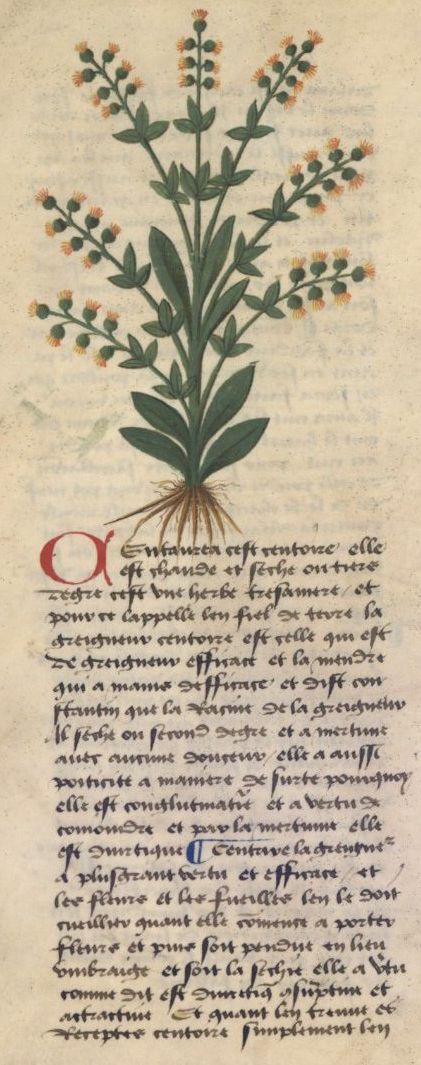 Centaurea cest centoire elle
est chaude et seche ou tiers
degre cest vne herbe tresamere / et
pour ce lappelle len fiel de terre la
greigneur centoire est celle qui est
de greigneur efficace et la mendre
qui a mains defficace et dist con
stantin que la Racine de la greigneur
Il seche ou second degre et a mertume
auec aucune douceur / elle a aussi
ponticite a maniere de surte pourquoy
elle est conglutinatiue et a vertu de
comoindre et par la mertume elle
est diuretique ¶ Centaure la greigneur
a plusgrant vertu et efficace / et
les fleurs et les fueilles len le doit
cueillier quant elle cōmence a porter
fleurs et puis soit pendue en lieu
vmbraige et soit la sechie elle a v̄tu
comme dit est diuretiq̄ 9sūptiue et
attractiue Et quant len treuue es
Receptes centoire simplement len